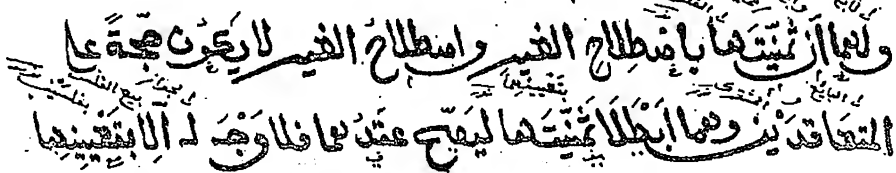 ولهما ان ثمنيتها باصطلاح الغير واصطلاح الغير لا يكون حجة على
المتعاقدين وهما ابطلا ثمنيتها ليصح عقدهما فلا وجه له الا بتعيينها